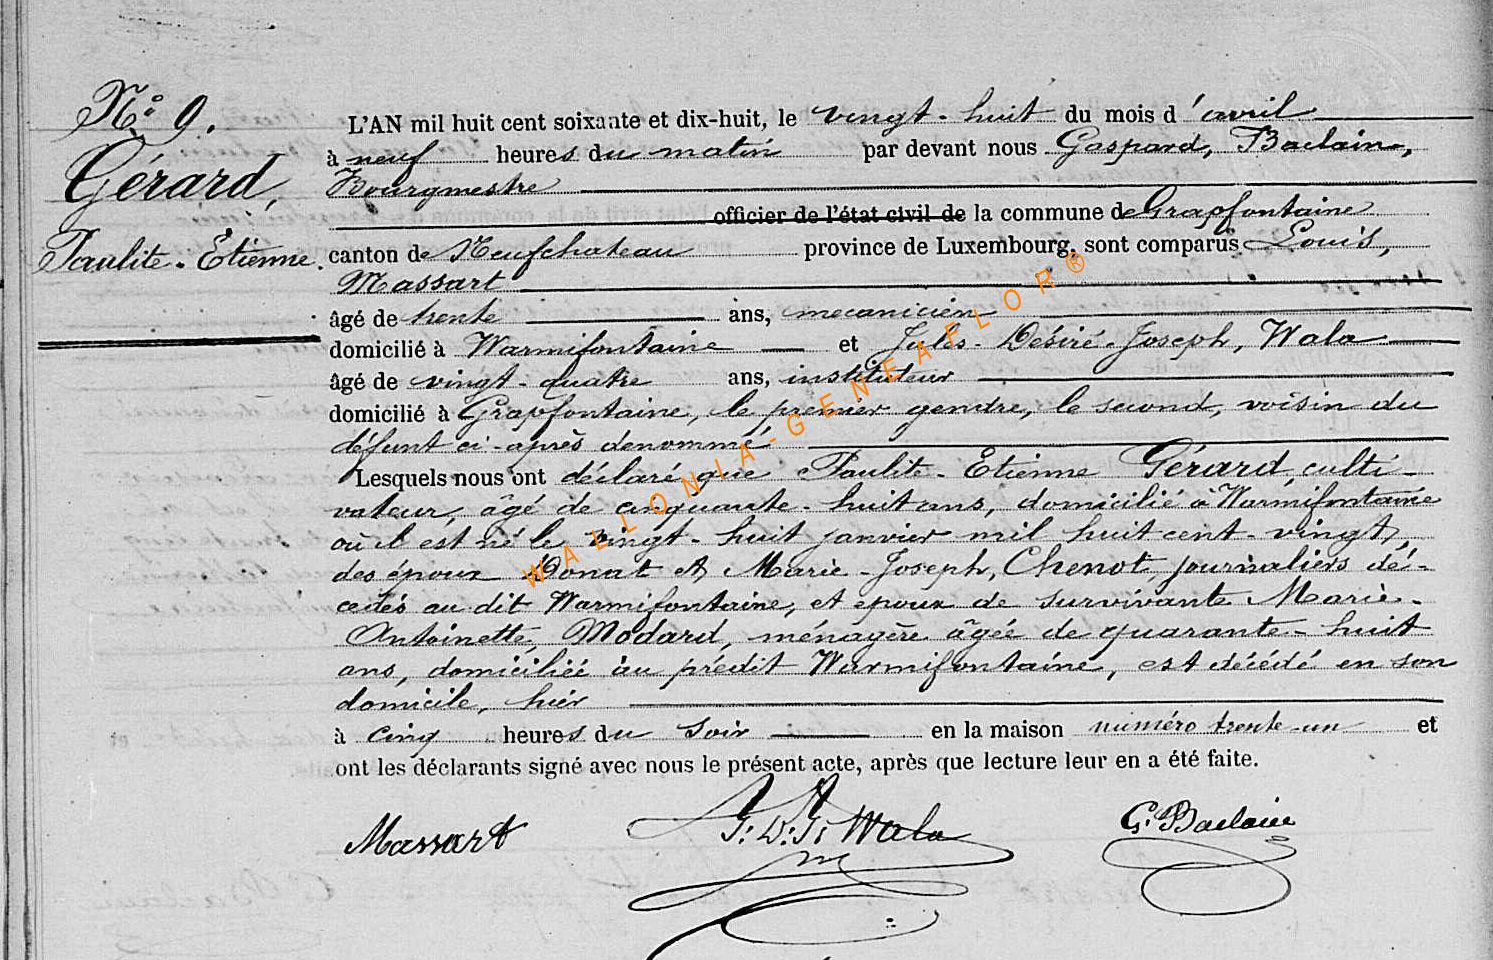 N.º 9.
Gérard,
Paulite-Etienne.
L'AN mil huit cent soixante et dix-huit, le vingt-huit du mois d'avril
à neuf heures du matin par devant nous Gaspard, Baclain,
Bourgmestre
officier de l'état civil de la commune de Grapfontaine
canton de Neufchateau province de Luxembourg, sont comparus Louis,
Massart
âgé de trente ans, mecanicien
domicilié à Warmifontaine et Jules-Désiré-Joseph, Wala
âgé de vingt-quatre ans, instituteur
domicilié à Grapfontaine, le premier gendre, le second, voisin du
défunt ci-après denommé
Lesquels nous ont déclaré que Paulite-Etienne Gérard, culti-
vateur, âgé de cinquante-huit ans, domicilié à Warmifontaine
où il est né le vingt-huit janvier mil huit cent-vingt,
des époux Donat et Marie-Joseph, Chenot, journaliers dé-
cedés au dit Warmifontaine, et epoux de survivante Marie-
Antoinette, Modard, ménagère âgée de quarante-huit
ans, domiciliée au prédit Warmifontaine, est décédé en son
domicile, hier
à cinq heures du soir en la maison numéro trente-un et
ont les déclarants signé avec nous le présent acte, après que lecture leur en a été faite.
Massart J. D. J. Wala G. Baclain
WALLONIA-GENEAFLOR®